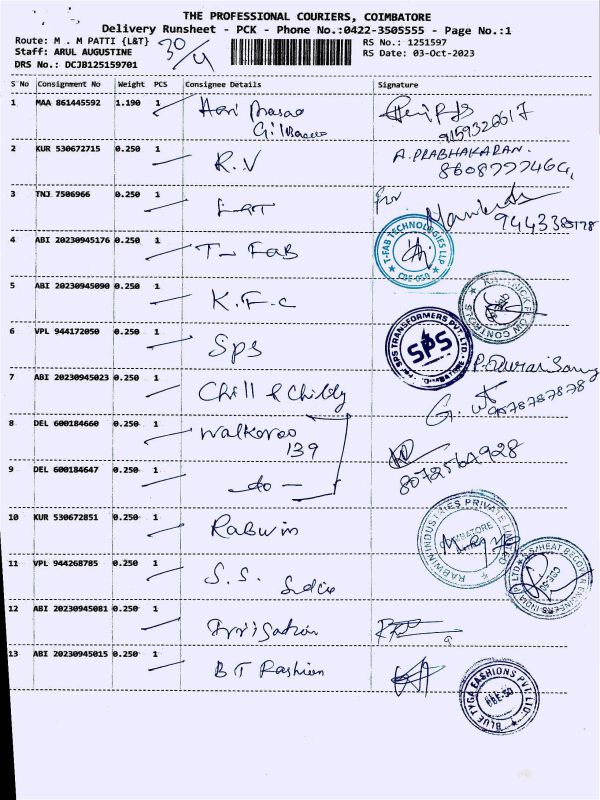 THE PROFESSIONAL COURIERS, COIMBATORE
Delivery Runsheet - PCK - Phone No.:0422-3505555 - Page No.:1
Route: M . M PATTI {L&T}
30/4
RS No.: 1251597
Staff: ARUL AUGUSTINE
RS Date: 03-Oct-2023
DRS No.: DCJB125159701
S No Consignment No Weight PCS Consignee Details Signature
1 MAA 861445592 1.190 1 Hari Prasad
9159326617
2 KUR 530672715 0.250 1 R.V A.PRABHAKARAN.
3 TNJ 7506966 0.250 1 L&T For
T-FAB TECHNOLOGIES LLP
CBE-050
4 ABI 20230945176 0.250 1 T-FAB
5 ABI 20230945090 0.250 1 K.F.C
FLOW CONTROLS
6 VPL 944172050 0.250 1 SPS
SPS TRANSFORMERS PVT. LTD.
SPS
7 ABI 20230945023 0.250 1 Chill & Chilly
8 DEL 600184660 0.250 1 Walkaroo
139
9 DEL 600184647 0.250 1 - do -
10 KUR 530672851 0.250 1 Rabwin
RABWIN INDUSTRIES PRIVATE LIMITED
COIMBATORE
11 VPL 944268785 0.250 1 S.S. India
12 ABI 20230945081 0.250 1 Irrigation
13 ABI 20230945015 0.250 1 BT Fashion
BLUE TYGA FASHIONS PVT. LTD.